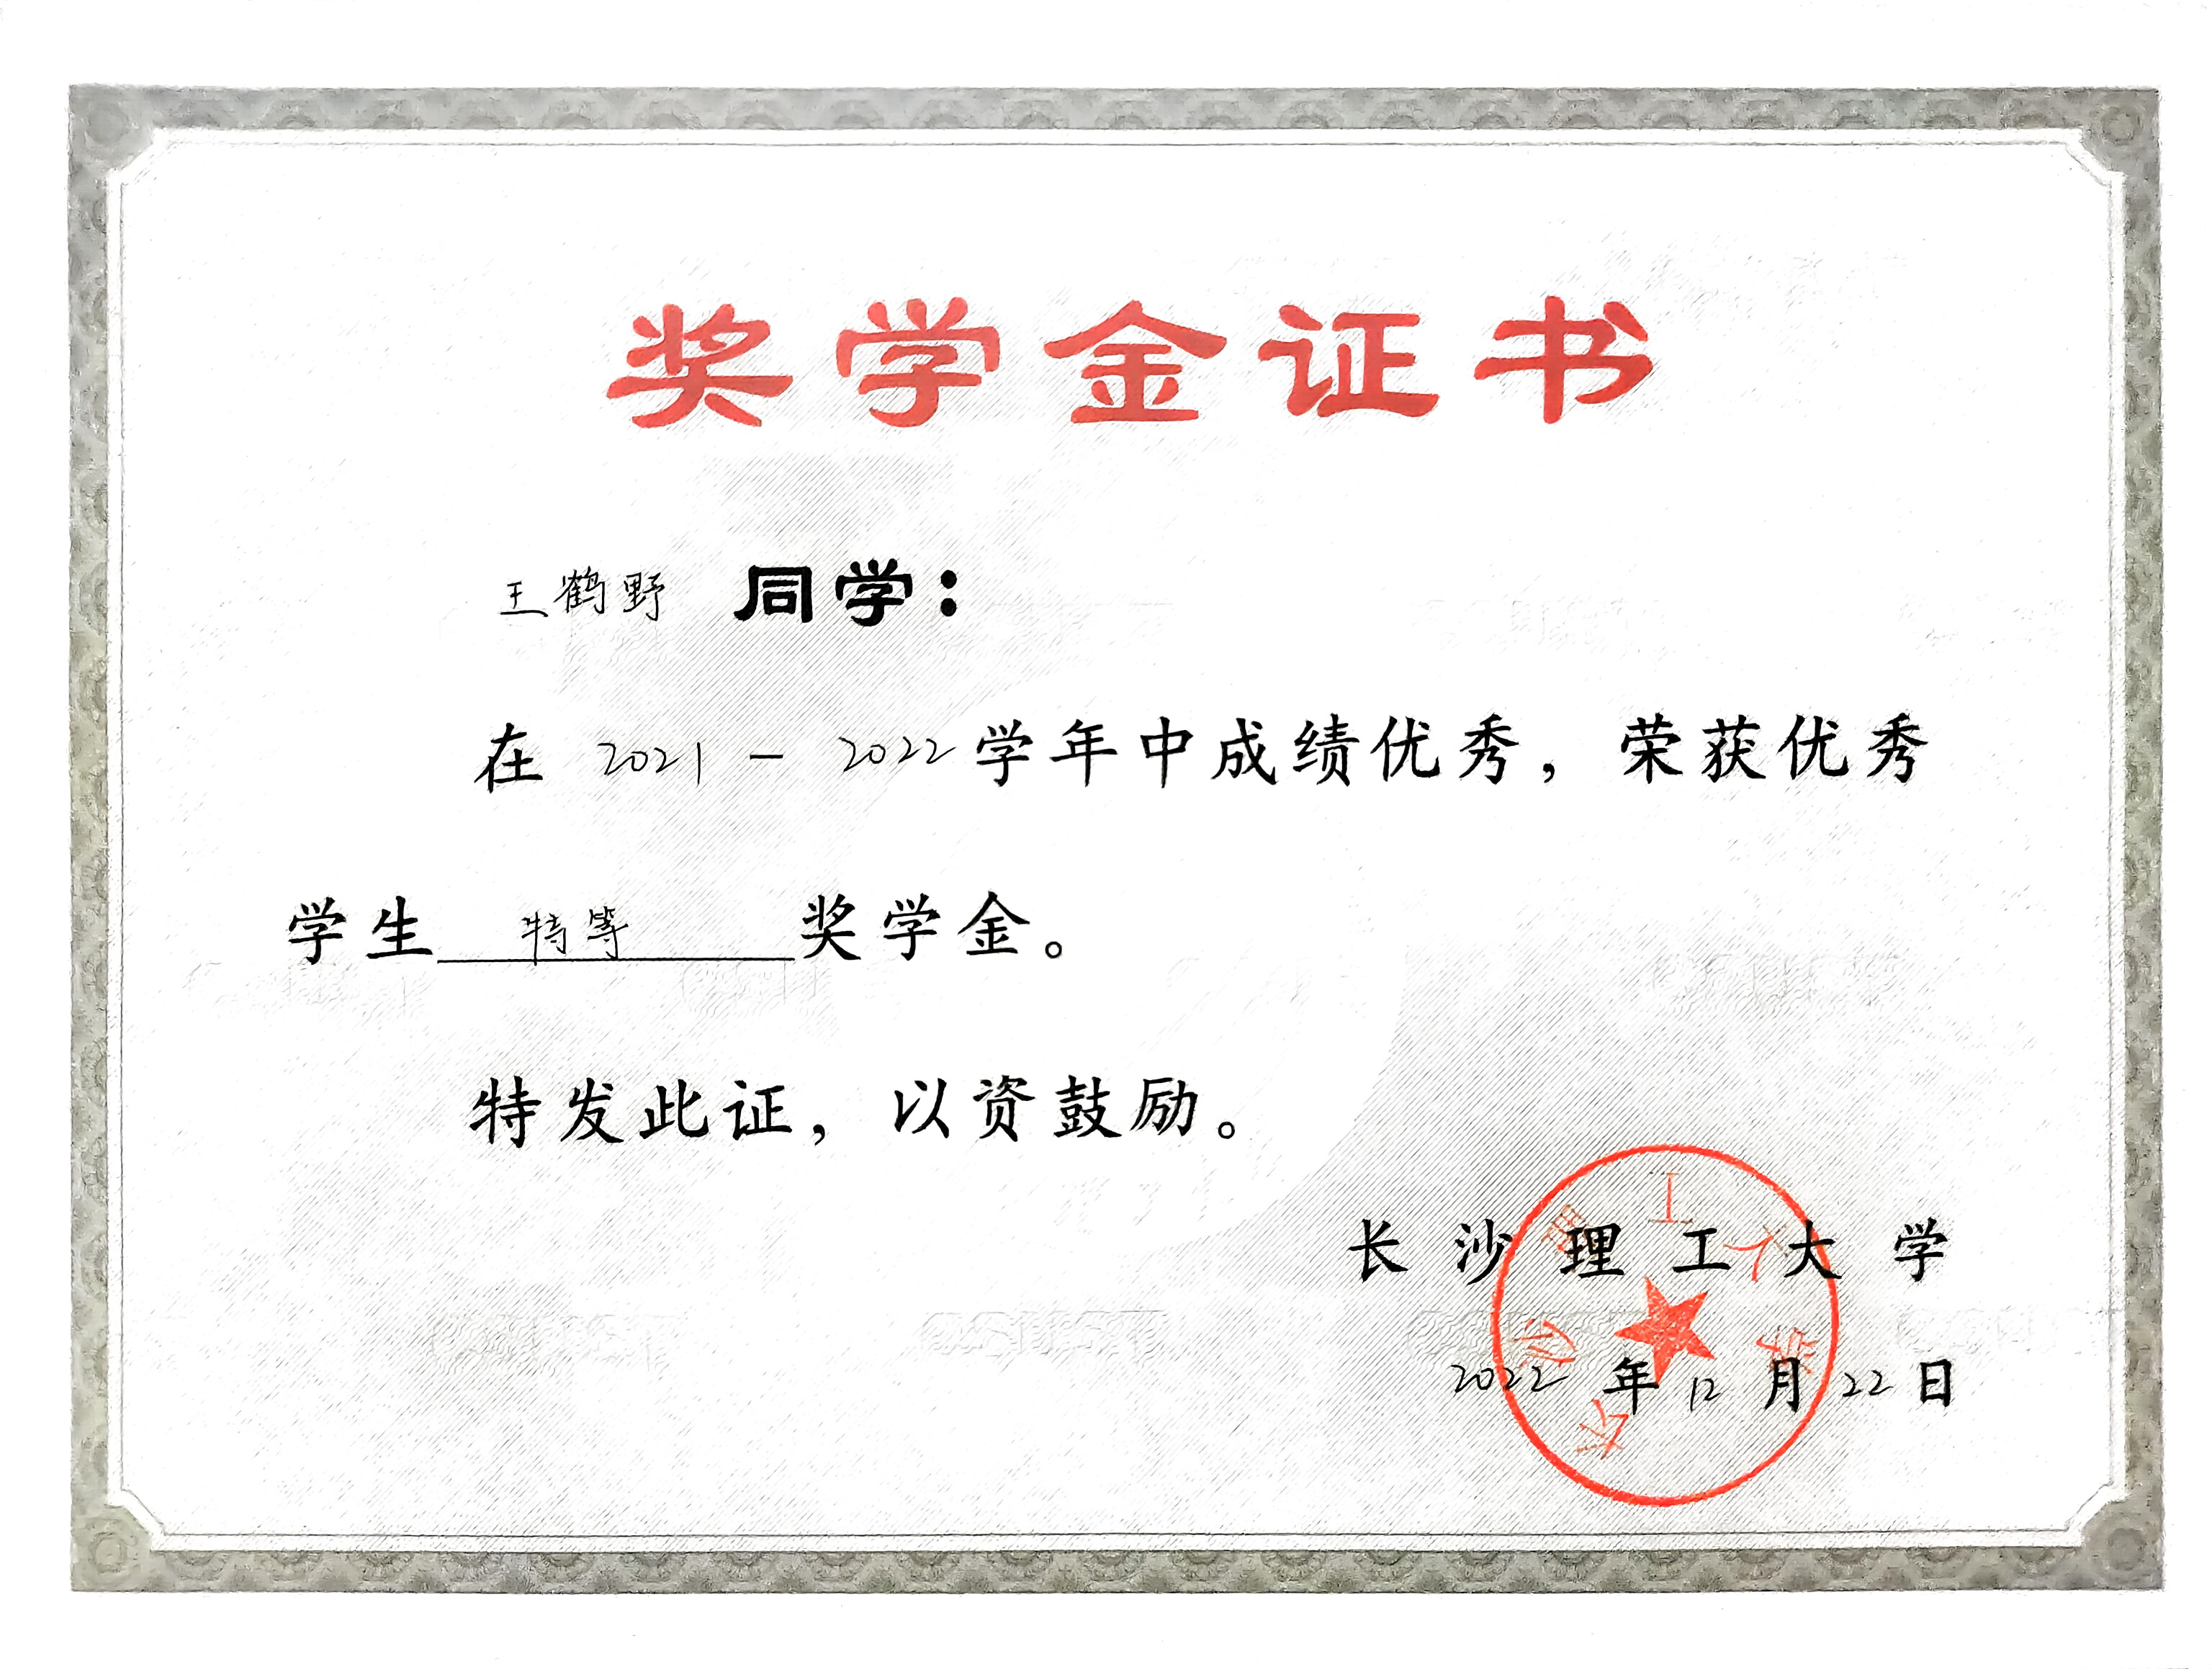 奖学金证书
王鹤野 同学：
在 2021 - 2022 学年中成绩优秀，荣获优秀
学生 特等 奖学金。
特发此证，以资鼓励。
长沙理工大学
长沙理工大学
2022 年 12 月 22 日